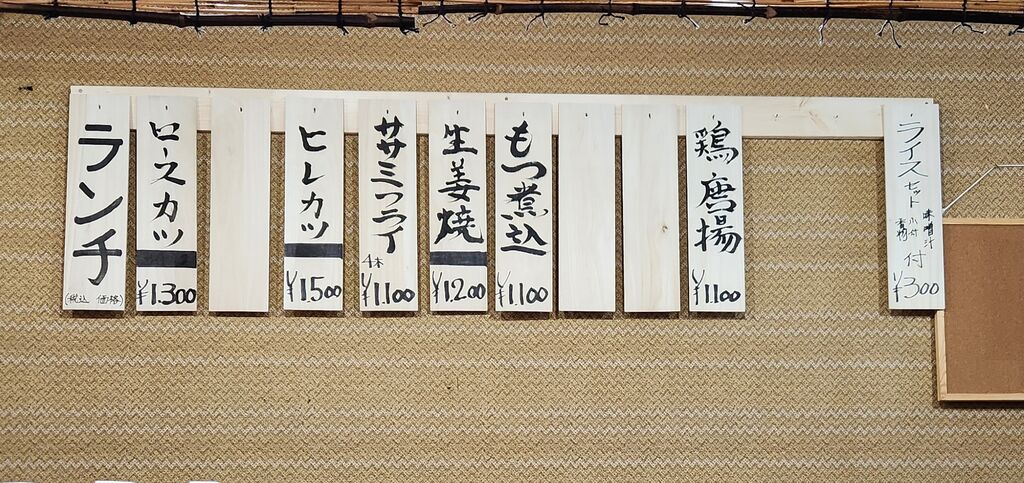 ランチ
(税込 価格)
ロースカツ
¥1.300
ヒレカツ
¥1.500
ササミフライ
4本
¥1.100
生姜焼
¥1.200
もつ煮込
¥1.100
鶏唐揚
¥1.100
ライスセット
味噌汁
小付
香物
付
¥300